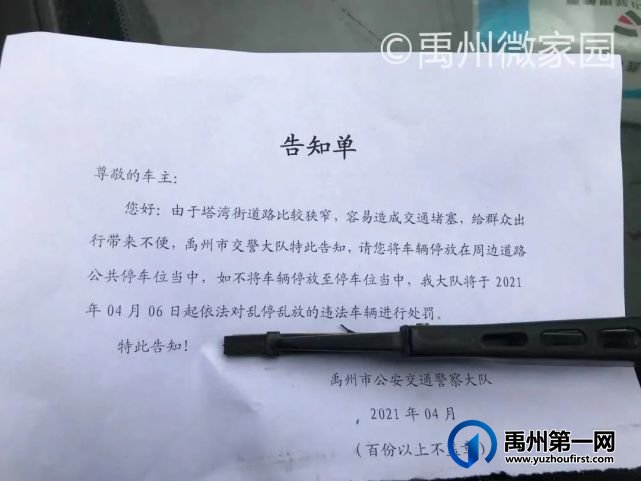 ©禹州微家园
告知单
尊敬的车主：
您好：由于塔湾街道路比较狭窄，容易造成交通堵塞，给群众出
行带来不便，禹州市交警大队特此告知，请您将车辆停放在周边道路
公共停车位当中，如不将车辆停放至停车位当中，我大队将于 2021
年 04 月 06 日起依法对乱停乱放的违法车辆进行处罚。
特此告知！
禹州市公安交通警察大队
2021 年 04 月
（百份以上不盖章）
禹州第一网
www.yuzhoufirst.com